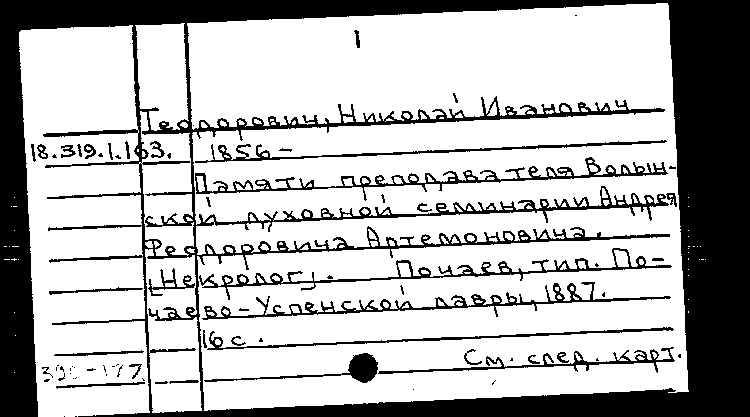 I
Теодорович, Николай Иванович
18.319.1.163. 1856-
Памяти преподавателя Волын-
ской духовной семинарии Андрея
Феодоровича Артемоновича.
[Некролог]. Почаев, тип. По-
чаево-Успенской лавры, 1887.
16 с.
См. след. карт.